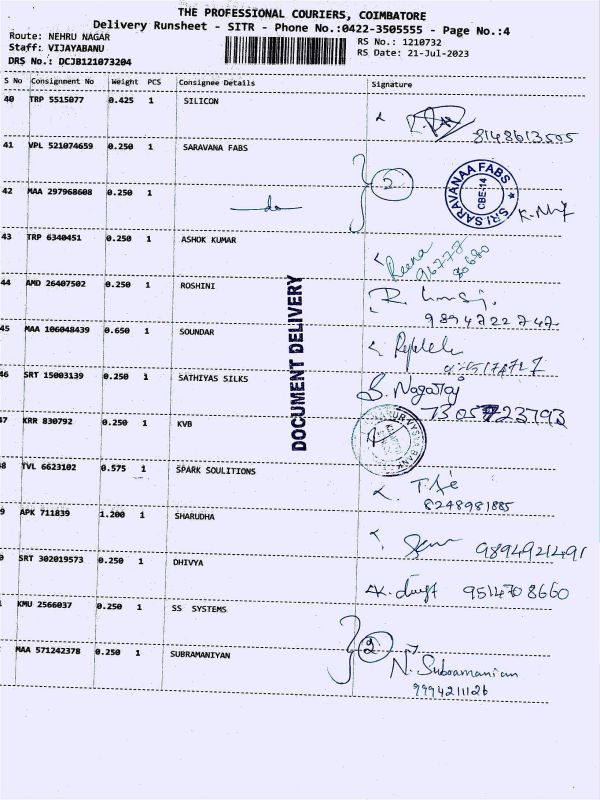 THE PROFESSIONAL COURIERS, COIMBATORE
Delivery Runsheet - SITR - Phone No.:0422-3505555 - Page No.:4
Route: NEHRU NAGAR
RS No.: 1210732
Staff: VIJAYABANU
RS Date: 21-Jul-2023
DRS No.: DCJB121073204
S No Consignment No Weight PCS Consignee Details Signature
40 TRP 5515077 0.425 1 SILICON
8148613505
41 VPL 521074659 0.250 1 SARAVANA FABS
2
SRI SARAVANAA FABS CBE-14
42 MAA 297968608 0.250 1 do
43 TRP 6340451 0.250 1 ASHOK KUMAR
Reena
96777
80680
44 AMD 26407502 0.250 1 ROSHINI
9894722747
DOCUMENT DELIVERY
45 MAA 106048439 0.650 1 SOUNDAR
46 SRT 15003139 0.250 1 SATHIYAS SILKS
S. Nagaraj
7305723793
47 KRR 830792 0.250 1 KVB
VYSYA BANK
8 TVL 6623102 0.575 1 SPARK SOULITIONS
8248981885
9 APK 711839 1.200 1 SHARUDHA
9894921491
SRT 302019573 0.250 1 DHIVYA
9514708660
KMU 2566037 0.250 1 SS SYSTEMS
2
MAA 571242378 0.250 1 SUBRAMANIYAN
N. Subramanian
9994211126